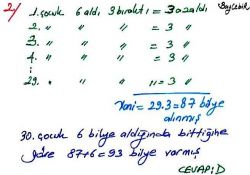 2) 1. çocuk 6 aldı 3 bıraktı = 3 azaldı
2. " " " = 3 "
3. " " " = 3 "
4. " " " = 3 "
29. " " " = 3 "
Yani = 29.3 = 87 bilye
alınmış
30. çocuk 6 bilye aldığında bittiğine
göre 87+6=93 bilye varmış
CEVAP: D